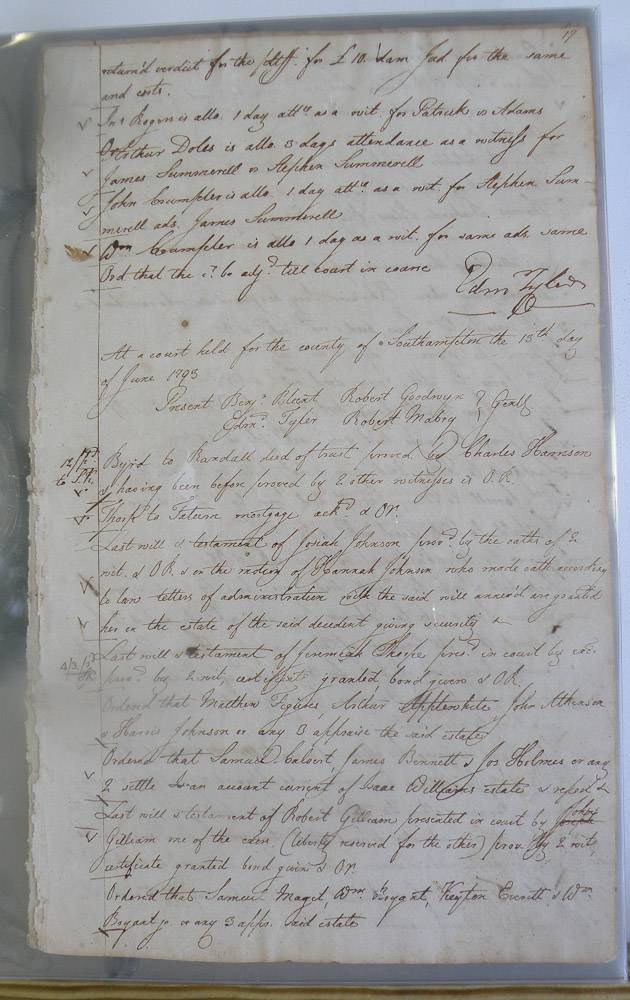 17
return'd verdict for the pltff. for £10. dam Jud for the same
and costs.
Jns Rogers is allo. 1 day attce as a wit. for Patrick vs Adams
Arthur Doles is allo. 3 days attendance as a witness for
James Summerell vs Stephen Summerell
John Crumpler is allo. 1 day attce as a wit. for Stephen Sum-
merell ads. James Summerell
Wm Crumpler is allo 1 day as a wit. for same ads. same
Ord that the ct. be adjd. till court in course
Edm Tyler
At a court held for the county of Southampton the 13th day
of June 1793
Present Benj. Blunt Robert Goodwyn } Gent
Edmd. Tyler Robert Mabry
Byrd to Randall deed of trust proved by Charles Harrison
& having been before proved by 2 other witnesses is O.R.
Thorp to Tatum mortgage ackd. & OR
Last will & testament of Josiah Johnson provd by the oaths of 2
wit. & OR & on the motion of Hannah Johnson who made oath according
to law letters of administration with the said will annex'd are granted
her on the estate of the said decedent giving security &
Last will & testament of Jeremiah Thorpe pres.d in court by exr.
prov.d by 2 wit. certificate granted bond given & OR.
Ordered that Matthew Figures, Arthur Applewhite, John Atkinson
& Harris Johnson or any 3 appraise the said estate
Ordered that Samuel Calvert, James Bennett & Jos Holmes or any
2 settle an account current of Isaac Williams estate & report &
Last will & testament of Robert Gilliam presented in court by John
Gilliam one of the exrs. (liberty reserved for the other) prov. by 2 wit,
certificate granted bond given & OR
Ordered that Samuel Maget, Wm Bryant, Keyton Everitt & Wm
Bryant jr. or any 3 appr. said estate